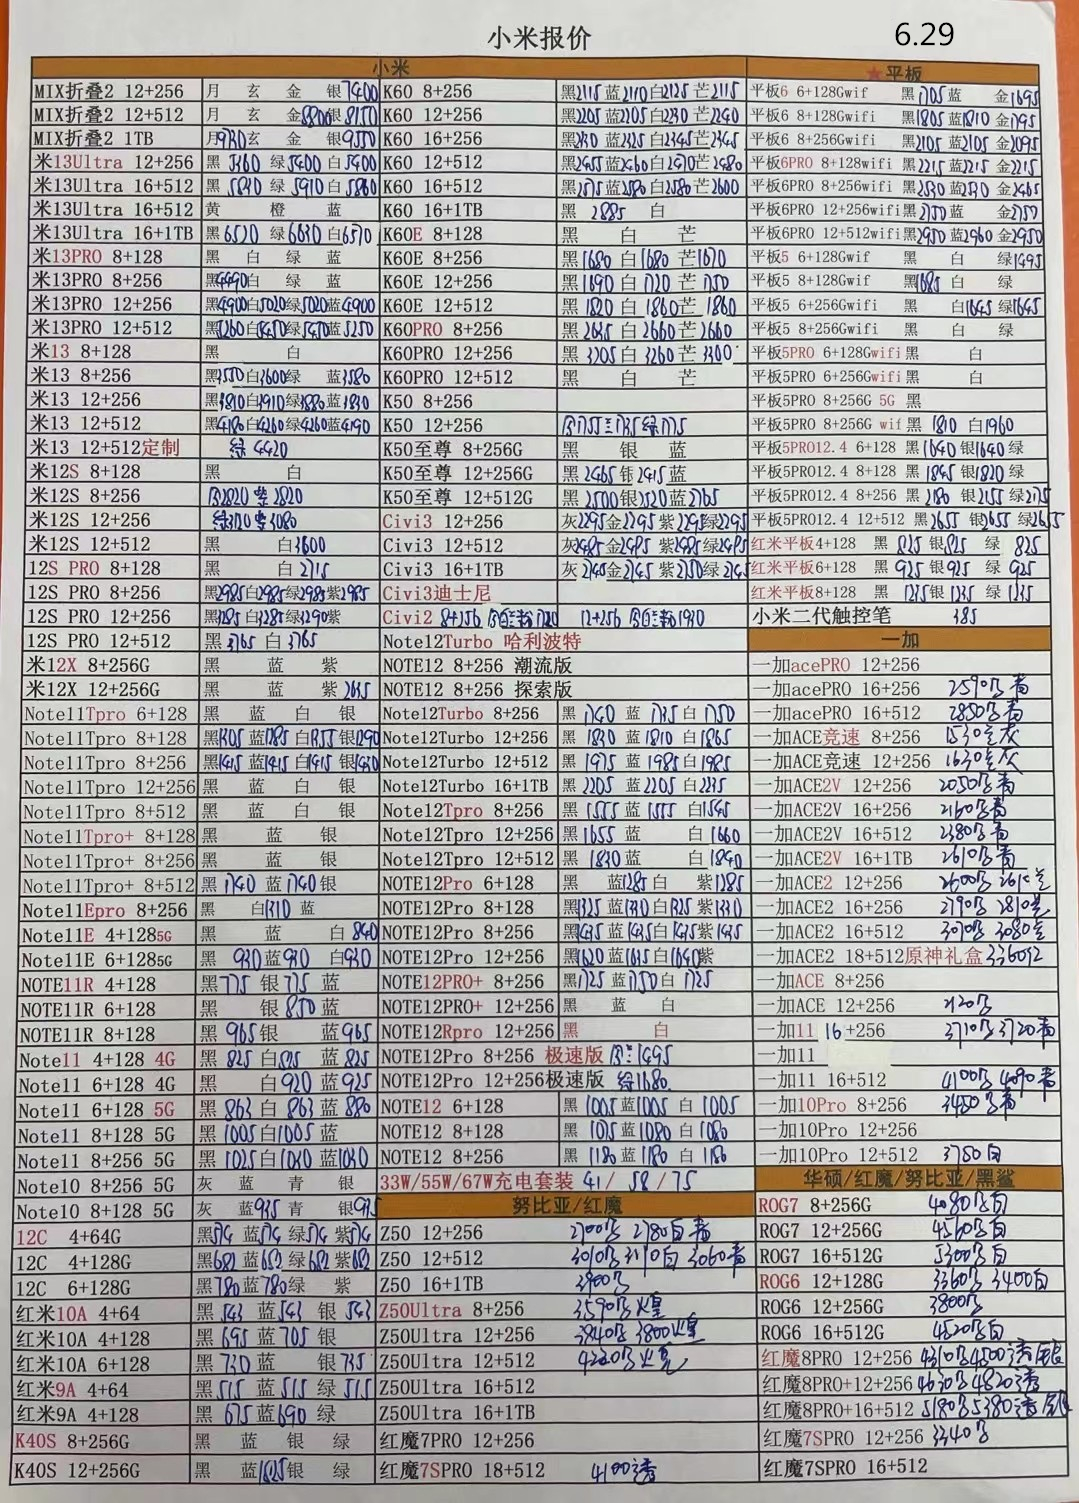 小米报价
6.29
小米
MIX折叠2 12+256 月 玄 金 银7400
MIX折叠2 12+512 月 玄 金8800银8150
MIX折叠2 1TB 月9730玄 金 银9550
米13Ultra 12+256 黑 5360 绿5400 白5400
米13Ultra 16+512 黑 5870 绿 5910 白5860
米13Ultra 16+512 黄 橙 蓝
米13Ultra 16+1TB 黑6520 绿6630白6570
米13PRO 8+128 黑 白 绿 蓝
米13PRO 8+256 黑4490白 绿 蓝
米13PRO 12+256 黑4900白5020绿5020蓝4900
米13PRO 12+512 黑5260白5450绿5470蓝5250
米13 8+128 黑 白
米13 8+256 黑3550白3600绿 蓝3580
米13 12+256 黑3810白3910绿3880蓝3830
米13 12+512 黑4180白4260绿4260蓝4190
米13 12+512定制 绿 4420
米12S 8+128 黑 白
米12S 8+256 2820 2820
米12S 12+256 绿3120 3080
米12S 12+512 黑 白3600
12S PRO 8+128 黑 白 2715
12S PRO 8+256 黑2985白2985绿2985紫2985
12S PRO 12+256 黑3285白3285绿3290紫
12S PRO 12+512 黑 3765 白 3765
米12X 8+256G 黑 蓝 紫
米12X 12+256G 黑 蓝 紫 2635
Note11Tpro 6+128 黑 蓝 白 银
Note11Tpro 8+128 黑1305 蓝1285白1355银1290
Note11Tpro 8+256 黑1415 蓝1415 白1415 银1430
Note11Tpro 12+256 黑 蓝 白 银
Note11Tpro 8+512 黑 蓝 白 银
Note11Tpro+ 8+128 黑 蓝 银
Note11Tpro+ 8+256 黑 蓝 银
Note11Tpro+ 8+512 黑 1740 蓝1740银
Note11Epro 8+256 黑 白1310 蓝
Note11E 4+1285G 黑 蓝 白 840
Note11E 6+1285G 黑 930蓝930 白930
NOTE11R 4+128 黑775 银775 蓝
NOTE11R 6+128 黑 银850蓝
NOTE11R 8+128 黑 965银 蓝965
Note11 4+128 4G 黑 825 白825 蓝825
Note11 6+128 4G 黑 白920 蓝925
Note11 6+128 5G 黑 863白 863蓝880
Note11 8+128 5G 黑 1005白1005蓝
Note11 8+256 5G 黑 1025白1030 蓝1030
Note10 8+256 5G 灰 蓝 青 银
Note10 8+128 5G 灰 蓝935 青 银935
12C 4+64G 黑574 蓝574 绿574 紫574
12C 4+128G 黑682 蓝682 绿682 紫682
12C 6+128G 黑780蓝780绿 紫
红米10A 4+64 黑 543 蓝543 银 543
红米10A 4+128 黑 695 蓝705 银
红米10A 6+128 黑 730 蓝 银735
红米9A 4+64 黑515 蓝 515 绿 515
红米9A 4+128 黑 675蓝690 绿
K40S 8+256G 黑 蓝 银 绿
K40S 12+256G 黑 蓝1625银 绿
K60 8+256 黑2115蓝2110白2125芒2115
K60 12+256 黑2205蓝2205白2230芒2240
K60 16+256 黑2330 蓝2325白2345芒2345
K60 12+512 黑2455蓝2460白2470芒2480
K60 16+512 黑2575蓝2580白2580芒2600
K60 16+1TB 黑 2885 白
K60E 8+128 黑 白 芒
K60E 8+256 黑1680 白1680 芒1670
K60E 12+256 黑1690 白1720 芒1750
K60E 12+512 黑1820 白1860芒1860
K60PRO 8+256 黑2635 白2660芒2660
K60PRO 12+256 黑 3205 白3260芒3300
K60PRO 12+512 黑 白 芒
K50 8+256
K50 12+256 1755 1735 绿1775
K50至尊 8+256G 黑 银 蓝
K50至尊 12+256G 黑 2465 银2415蓝
K50至尊 12+512G 黑 2500银2520蓝2765
Civi3 12+256 灰2295金2295 紫2295绿2295
Civi3 12+512 灰2485金2495 紫2485绿2495
Civi3 16+1TB 灰 2745金2745 紫2750绿2745
Civi3迪士尼
Civi2 8+256 1720 12+256 1930
Note12Turbo 哈利波特
NOTE12 8+256 潮流版
NOTE12 8+256 探索版
Note12Turbo 8+256 黑 1740 蓝 1735白1750
Note12Turbo 12+256 黑 1830 蓝 1810 白1865
Note12Turbo 12+512 黑 1975 蓝 1985白1985
Note12Turbo 16+1TB 黑 2205 蓝2205 白2235
Note12Tpro 8+256 黑 1555 蓝1555 白1545
Note12Tpro 12+256 黑1655 蓝 白1660
Note12Tpro 12+512 黑 1830 蓝 白 1840
NOTE12Pro 6+128 黑 蓝1285白 紫1285
NOTE12Pro 8+128 黑1325 蓝1330白1325紫1330
NOTE12Pro 8+256 黑1435 蓝1435白1435紫1435
NOTE12Pro 12+256 黑1620蓝1635白1640紫
NOTE12PRO+ 8+256 黑1725蓝1750白 1725
NOTE12PRO+ 12+256 黑 蓝 白
NOTE12Rpro 12+256 黑 白
NOTE12Pro 8+256 极速版 1495
NOTE12Pro 12+256极速版 绿1680
NOTE12 6+128 黑 1005蓝1005 白 1005
NOTE12 8+128 黑 1075蓝1080 白 1080
NOTE12 8+256 黑 1180 蓝1180 白 1180
33W/55W/67W充电套装 41/ 58 /75
努比亚/红魔
Z50 12+256 2700 2780白青
Z50 12+512 3010 3110白 3060青
Z50 16+1TB 3900
Z50Ultra 8+256 3590
Z50Ultra 12+256 3840 3800
Z50Ultra 12+512 4220
Z50Ultra 16+512
Z50Ultra 16+1TB
红魔7PRO 12+256
红魔7SPRO 18+512 4100透
★平板
平板6 6+128Gwif 黑1705蓝 金1695
平板6 8+128Gwifi 黑1805蓝1810 金1795
平板6 8+256Gwifi 黑2105 蓝2105 金2095
平板6PRO 8+128wifi 黑2215蓝2215金2215
平板6PRO 8+256wifi 黑2530蓝2530 金2465
平板6PRO 12+256wifi 黑2750蓝 金2750
平板6PRO 12+512wifi 黑2950 蓝2960 金2950
平板5 6+128Gwif 黑 白 绿1495
平板5 8+128Gwifi 黑1685 白 绿
平板5 6+256Gwifi 黑 白1645绿1645
平板5 8+256Gwifi 黑 白 绿
平板5PRO 6+128Gwifi 黑 白
平板5PRO 6+256Gwifi 黑 白
平板5PRO 8+256G 5G 黑
平板5PRO 8+256G wif 黑1810 白1960
平板5PRO12.4 6+128 黑1640 银1640 绿
平板5PRO12.4 8+128 黑1845 银1820 绿
平板5PRO12.4 8+256 黑 2180 银2155 绿2175
平板5PRO12.4 12+512 黑2655 银2655 绿2655
红米平板4+128 黑 825 银825 绿 825
红米平板6+128 黑 925 银925 绿 925
红米平板8+128 黑 1235银1235 绿 1235
小米二代触控笔 385
一加
一加acePRO 12+256
一加acePRO 16+256 2590 青
一加acePRO 16+512 2850 青
一加ACE竞速 8+256 1530 灰
一加ACE竞速 12+256 1630 灰
一加ACE2V 12+256 2050 青
一加ACE2V 16+256 2160 青
一加ACE2V 16+512 2380 青
一加ACE2V 16+1TB 2610 青
一加ACE2 12+256 2600
一加ACE2 16+256 2790 2810
一加ACE2 16+512 3070 3080
一加ACE2 18+512原神礼盒 3360
一加ACE 8+256
一加ACE 12+256 2120
一加11 16+256 3710 3720青
一加11
一加11 16+512 4100 4090青
一加10Pro 8+256 3450 青
一加10Pro 12+256
一加10Pro 12+512 3780白
华硕/红魔/努比亚/黑鲨
ROG7 8+256G 4080 白
ROG7 12+256G 4560 白
ROG7 16+512G 5300 白
ROG6 12+128G 3360 3400白
ROG6 12+256G 3800
ROG6 16+512G 4520 白
红魔8PRO 12+256 4310 4500透
红魔8PRO+12+256 4630 4820透
红魔8PRO+16+512 5180 5380透 银
红魔7SPRO 12+256 3340
红魔7SPRO 16+512